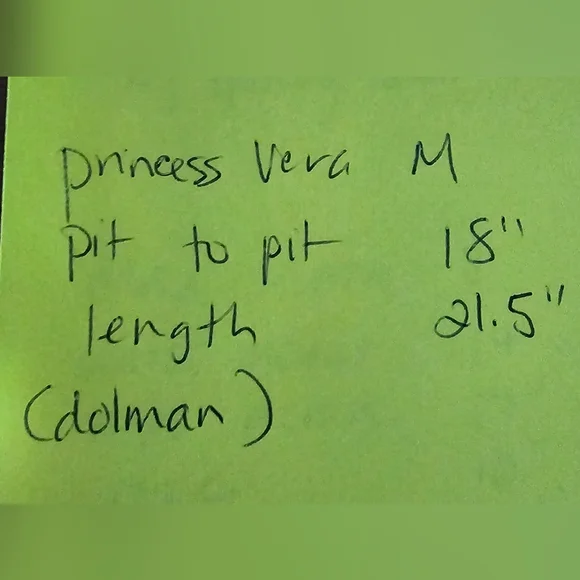 princess Vera M
pit to pit 18"
length 21.5"
(dolman)